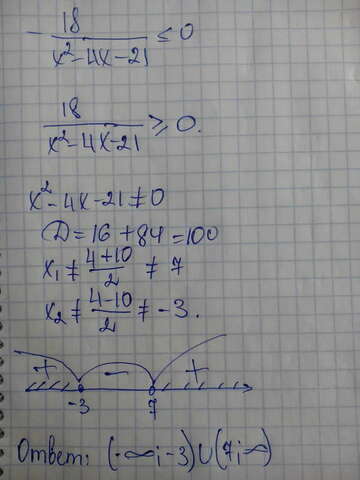 - 18/(x² - 4x - 21) ≤ 0
18/(x² - 4x - 21) ≥ 0.
x² - 4x - 21 ≠ 0
D = 16 + 84 = 100
x₁ ≠ (4+10)/2 ≠ 7
x₂ ≠ (4-10)/2 ≠ -3.
+ - +
-3 7
Ответ: (-∞; -3) ∪ (7; ∞)